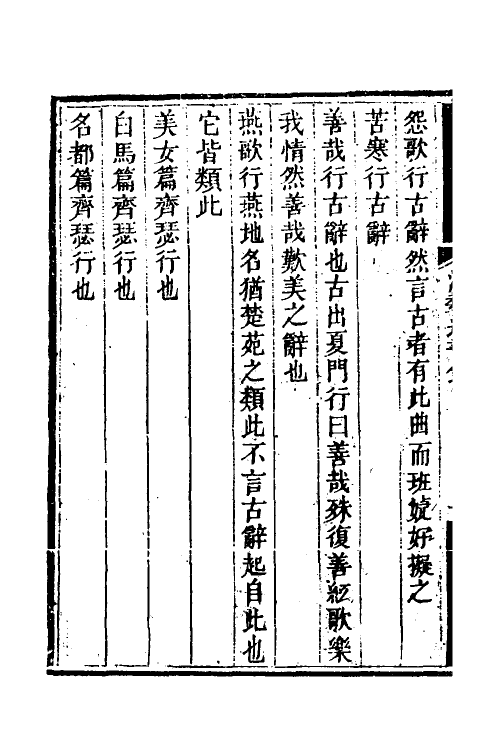 怨歌行古辭然言古者有此曲而班婕妤擬之
苦寒行古辭
善哉行古辭也古出夏門行曰善哉殊復善絃歌樂
我情然善哉歎美之辭也
燕歌行燕地名猶楚苑之類此不言古辭起自此也
它皆類此
美女篇齊瑟行也
白馬篇齊瑟行也
名都篇齊瑟行也